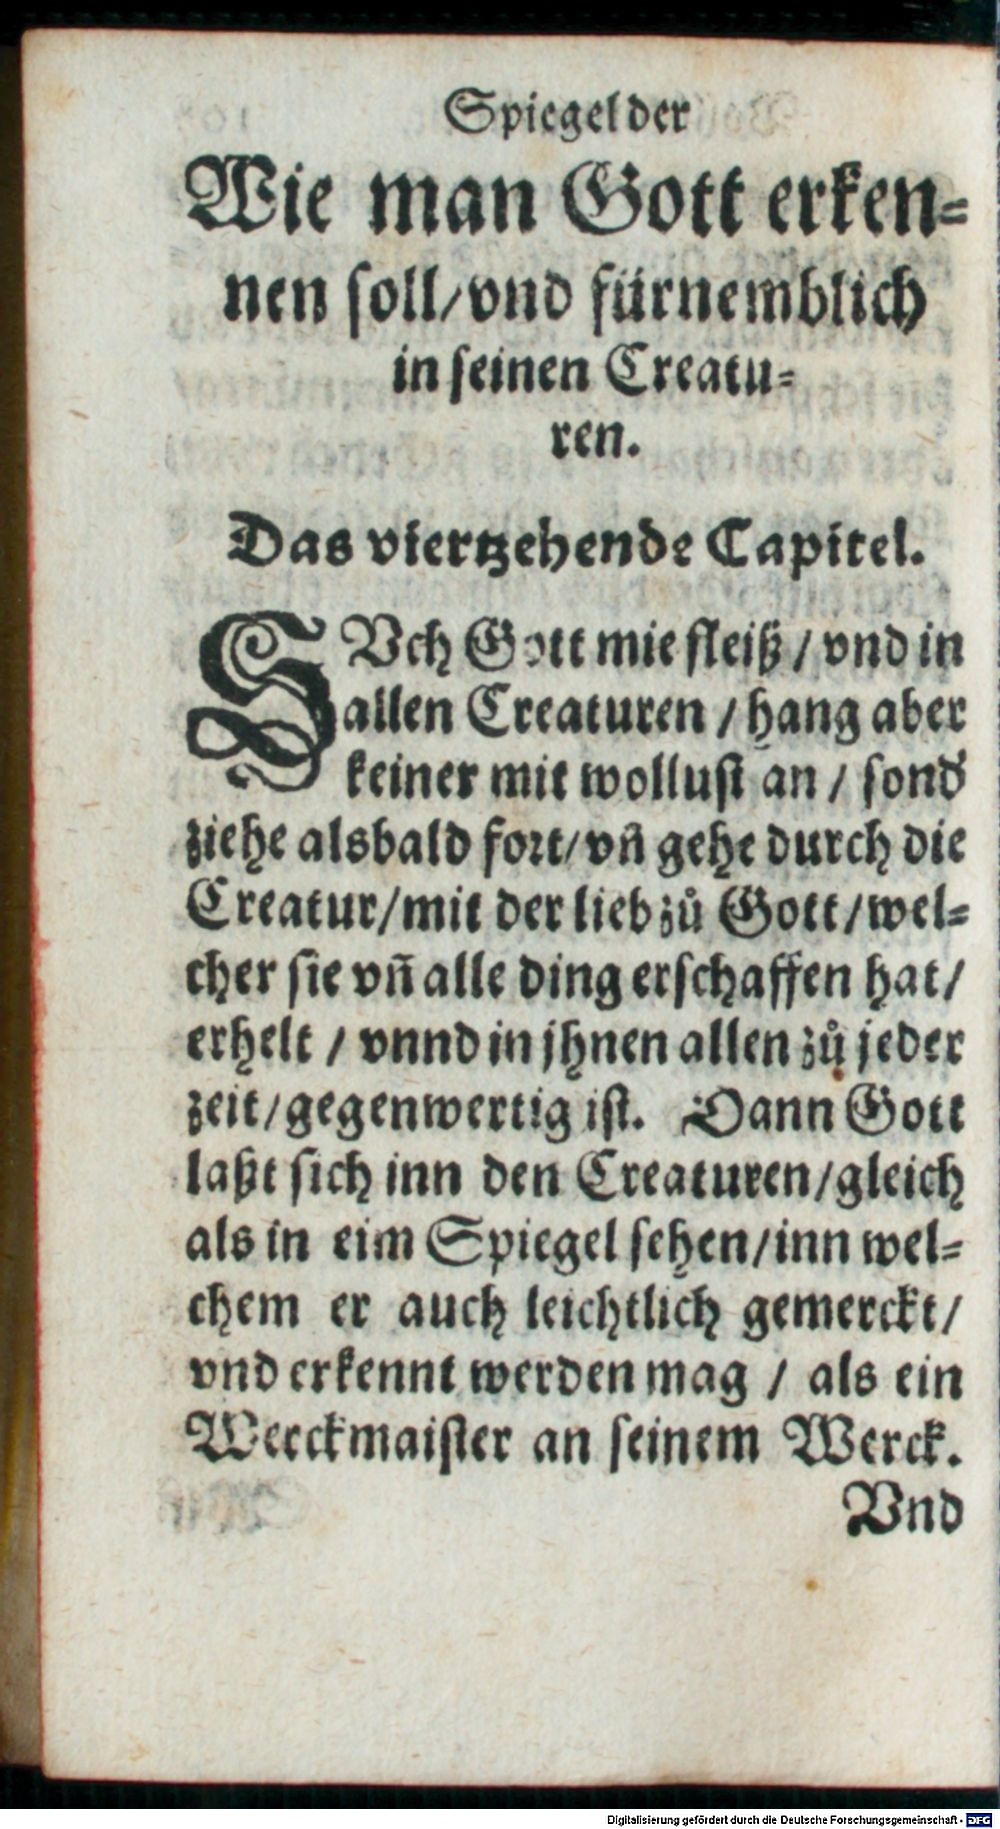 Spiegel der
Wie man Gott erken⸗
nen soll/vnd fürnemblich
in seinen Creatu⸗
ren.
Das viertzehende Capitel.
SVch Gott mit fleiß / vnd in
allen Creaturen / hang aber
keiner mit wollust an / sond
ziehe alsbald fort/vñ gehe durch die
Creatur/mit der lieb zů Gott/wel⸗
cher sie vñ alle ding erschaffen hat/
erhelt / vnnd in jhnen allen zů jeder
zeit/gegenwertig ist. Dann Gott
laßt sich inn den Creaturen/gleich
als in eim Spiegel sehen/inn wel⸗
chem er auch leichtlich gemerckt/
vnd erkennt werden mag / als ein
Werckmaister an seinem Werck.
Vnd
Digitalisierung gefördert durch die Deutsche Forschungsgemeinschaft - DFG